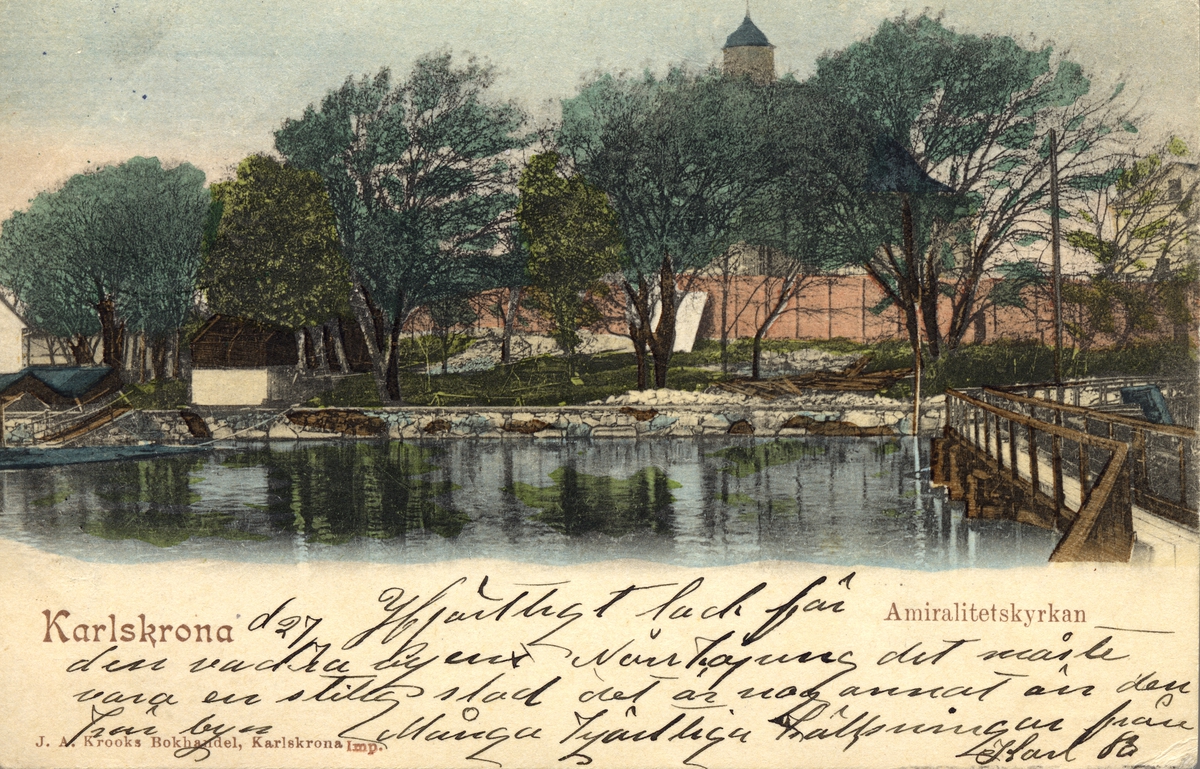 Karlskrona d 27/ Hjärtligt tack för
Amiralitetskyrkan
den vackra vyen Norrköping det måste
vara en stilig stad det är nog annat än den
här byn Många Hjärtliga Hälsningar från
Karl
J. A. Krooks Bokhandel, Karlskrona Imp.